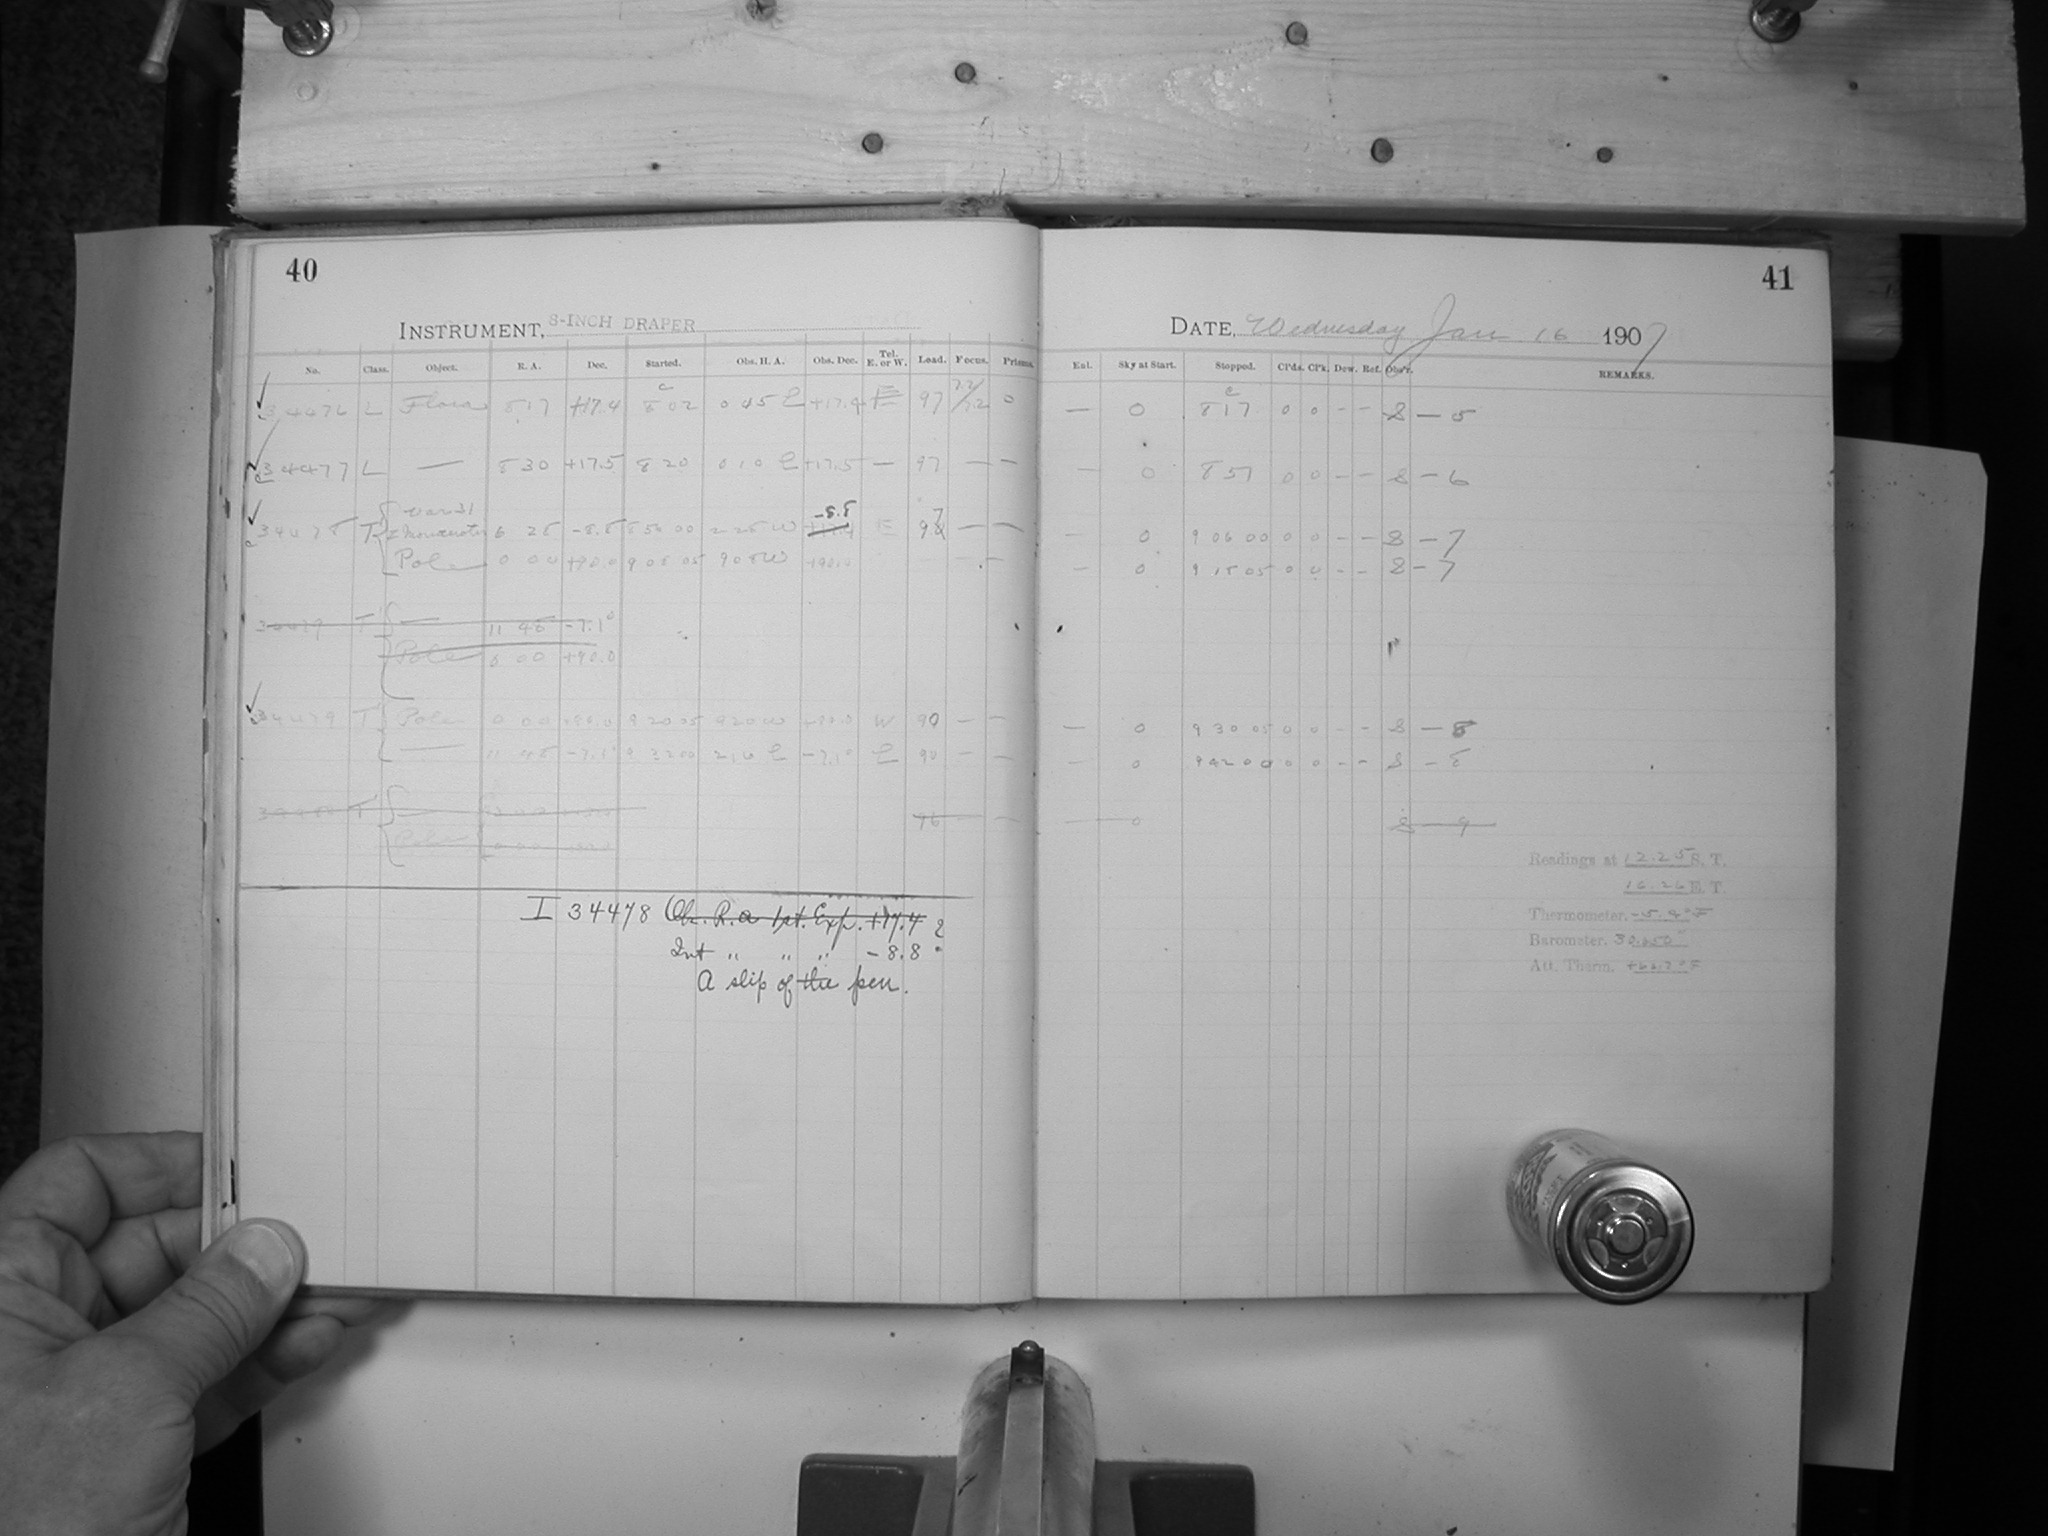 40
INSTRUMENT, 8-INCH DRAPER
No. Class. Object. R. A. Dec. Started. Obs. H. A. Obs. Dec. Tel. E. or W. Load. Focus. Prisms.
34476 L Flora 8 17 +17.4 8 02 0 45 E +17.4 E 97 0
34477 L — 8 30 +17.5 8 20 0 10 E +17.5 — 97 — —
-8.8
34478 T 6 28 -8.8 8 56 00 2 28 W E — —
Pole 0 00 +90.0 9 08 05 9 08 W +90.0
T — 11 48 -7.1°
Pole 0 00 +90.0
34479 T Pole 0 00 +90.0 9 20 05 9 20 W +90.0 W 90 — —
— 11 48 -7.1° 9 32 00 2 16 E -7.1° E 90 — —
T
Pole
I 34478 Obs. R. a 1st. Exp. +17.4 ?
Int " " " -8.8°
A slip of the pen.
41
DATE, Wednesday Jan 16 1907
Enl. Sky at Start. Stopped. Cl'ds. Cl'k. Dew. Ref. Obs'r. REMARKS.
— 0 8 17 0 0 - - S — 5
— 0 8 51 0 0 - - S — 6
— 0 9 06 00 0 0 - - S — 7
— 0 9 18 05 0 0 - - S — 7
— 0 9 30 05 0 0 - - S — 8
— 0 9 42 00 0 0 - - S — 8
— 0 S — 9
Readings at 12.25 S. T.
16.26 E. T.
Thermometer. -5.9°F
Barometer.
Att. Therm.